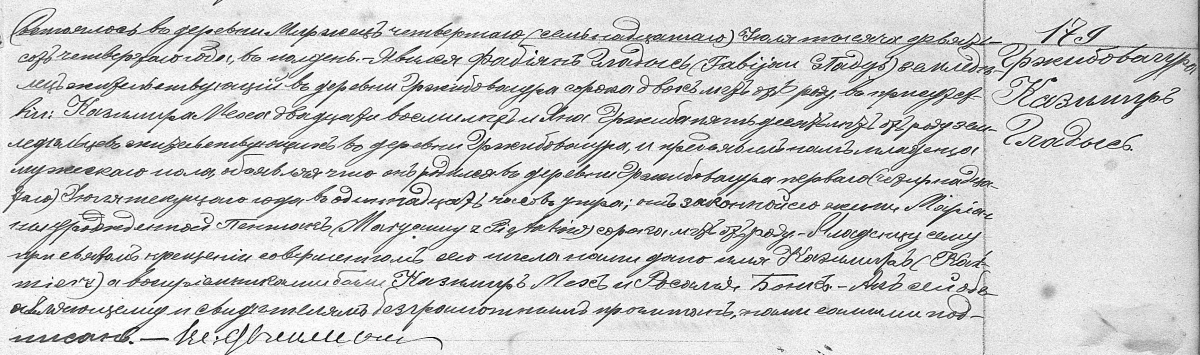 Состоялось въ деревни Миржецъ четвертаго (семьнадцатаго) Іюля тысяча девять-
сотъ четвертаго года, въ полдень. Явился Фабіянъ Гладысъ (Fabijan Gladyś) земледѣ-
лецъ жительствующій въ деревни Гржибовагура сорока двохъ лѣтъ отъ роду, въ присутст-
віи: Казимира Меха двадцати восьми лѣтъ и Яна Гржиба пять десять лѣтъ отъ роду зем-
ледѣльцовъ жительствующихъ въ деревни Гржибовагура, и предъявилъ намъ младенца
мужескаго пола, объявляя что онъ родился въ деревни Гржибовагура перваго (четырнадца-
таго) Іюля текущаго года в одиннадцать часовъ утра; отъ законной его жены Маріан-
ны урожденной Пентакъ, сорока лѣтъ отъ роду. Младенцу сему
при святомъ крещеніи совершенномъ сего числа нами дано имя Казимиръ (Kazi-
mierz) а воспріемниками были Казимиръ Мехъ и Росалія Бонкъ. Актъ сей объ-
являющему и свидѣтелямъ безграмотнымъ прочитанъ, нами самыми под-
писанъ. —
179
Гржибовагура
Казимиръ
Гладысъ.